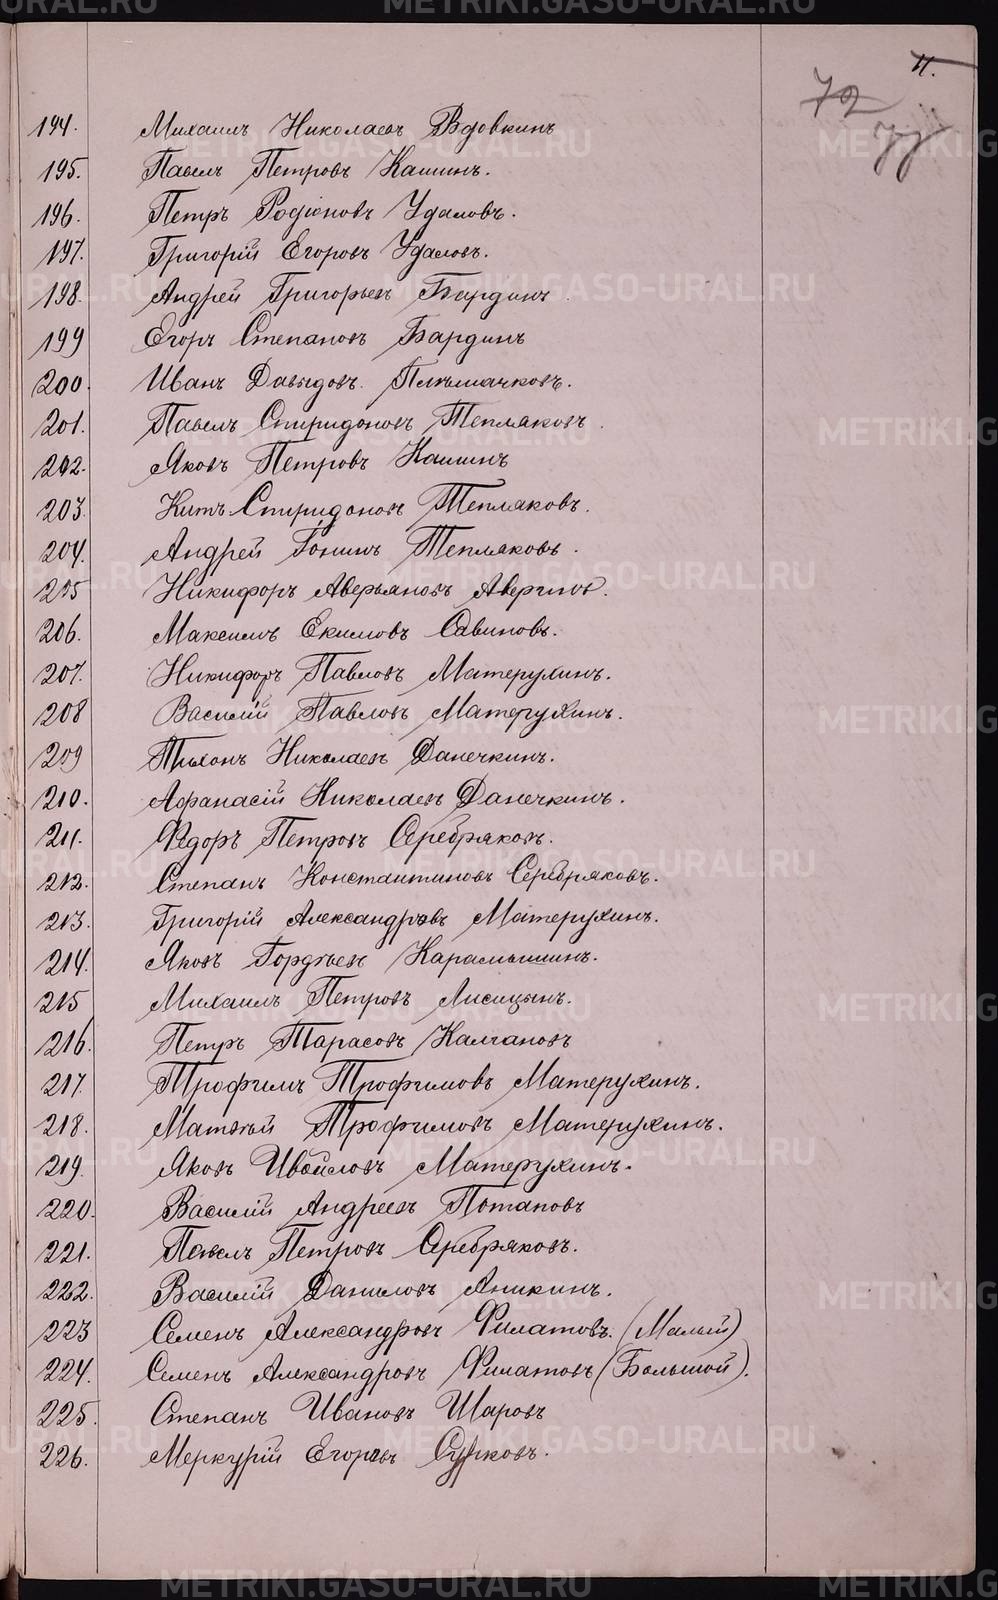 11.
72
77
194. Михаилъ Николаевъ Вдовкинъ
195. Павелъ Петровъ Кашинъ.
196. Петръ Родіоновъ Удаловъ.
197. Григорій Егоровъ Удаловъ.
198. Андрей Григорьевъ Бардинъ
199 Егоръ Степановъ Бардинъ
200. Иванъ Давыдовъ.
201. Павелъ Спиридоновъ Тепляковъ.
202. Яковъ Петровъ Кашинъ
203. Китъ Спиридоновъ Тепляковъ.
204. Андрей Тепляковъ.
205 Никифоръ Аверьяновъ
206. Максимъ Екимовъ Савиновъ.
207. Никифоръ Павловъ Матерухинъ.
208 Василій Павловъ Матерухинъ.
209 Тихонъ Николаевъ Данечкинъ.
210. Афанасій Николаевъ Данечкинъ.
211. Ѳедоръ Петровъ Серебряковъ.
212. Степанъ Константиновъ Серебряковъ.
213. Григорій Александровъ Матерухинъ.
214. Яковъ Гордѣевъ Карамышинъ.
215 Михаилъ Петровъ Лисицынъ.
216. Петръ Тарасовъ Калгановъ
217. Трофимъ Трофимовъ Матерухинъ.
218. Матвѣй Трофимовъ Матерухинъ.
219. Яковъ Ивойловъ Матерухинъ.
220. Василій Андреевъ Потаповъ
221. Павелъ Петровъ Серебряковъ.
222. Василій Даниловъ Аникинъ.
223 Семенъ Александровъ Филатовъ. (Малый)
224. Семенъ Александровъ Филатовъ (Большой).
225. Степанъ Ивановъ Шаровъ
226. Меркурій Егоровъ Сурковъ.
METRIKI.GASO-URAL.RU